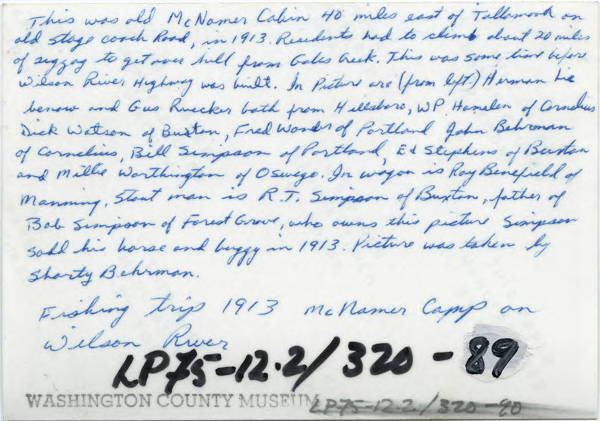 This was old McNamer Cabin 40 miles east of Tillamook on
old stage coach Road, in 1913. Residents had to climb about 20 miles
of zigzag to get over hill from Gales Creek. This was some time before
Wilson River Highway was built. In Picture are (from left) Herman Lie
benow and Gus Ruecker both from Hillsboro, WP Hamelen of Cornelius
Dick Watson of Buxton, Fred Wonder of Portland John Behrman
of Cornelius, Bill Simpson of Portland, Ed Stephens of Buxton
and Millie Worthington of Oswego. In wagon is Ray Benefield of
Manning, Stout man is R.T. Simpson of Buxton, father of
Bob Simpson of Forest Grove, who owns this picture Simpson
sold his horse and buggy in 1913. Picture was taken by
Shorty Behrman.
Fishing trip 1913 McNamer Camp on
Wilson River
LP75-12.2/320-89
WASHINGTON COUNTY MUSEUM LP75-12.2/320-90